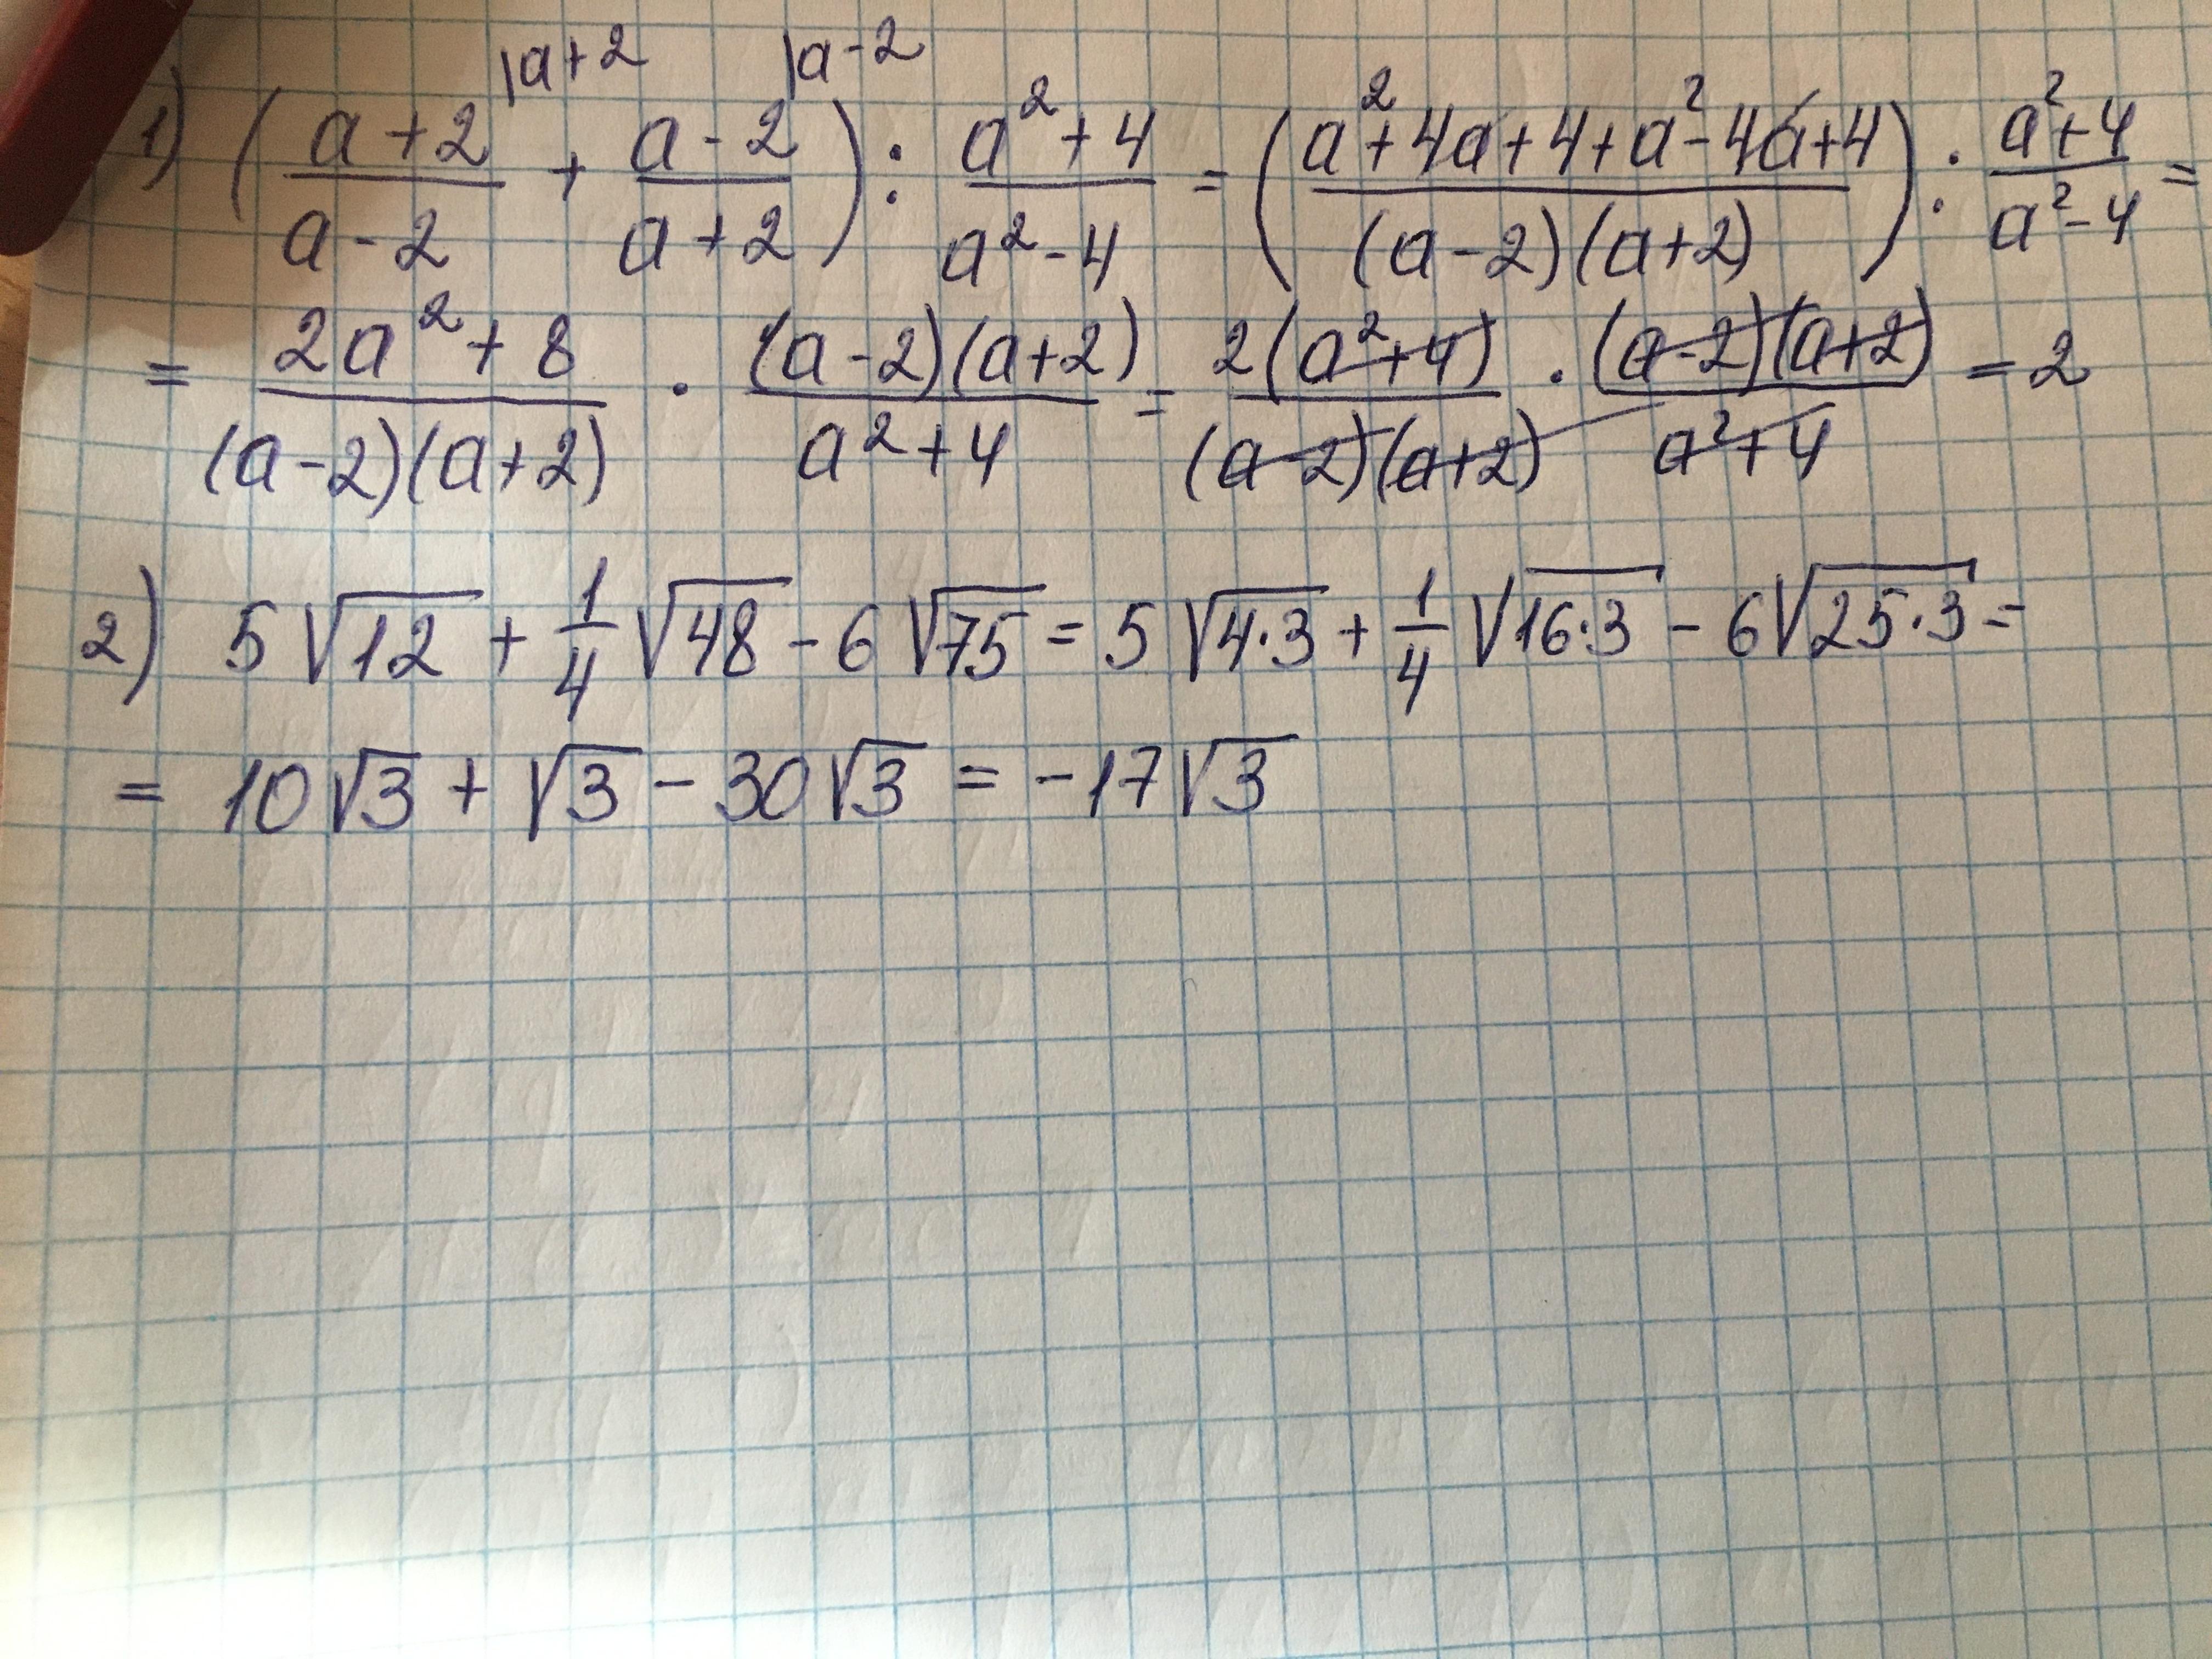 1) ( (a+2)/(a-2) |a+2 + (a-2)/(a+2) |a-2 ) : (a²+4)/(a²-4) = ( (a²+4a+4+a²-4a+4)/((a-2)(a+2)) ) : (a²+4)/(a²-4) =
= (2a²+8)/((a-2)(a+2)) · ((a-2)(a+2))/(a²+4) = (2(a²+4))/((a-2)(a+2)) · ((a-2)(a+2))/(a²+4) = 2
2) 5√12 + 1/4 √48 - 6√75 = 5√(4·3) + 1/4 √(16·3) - 6√(25·3) =
= 10√3 + √3 - 30√3 = -17√3